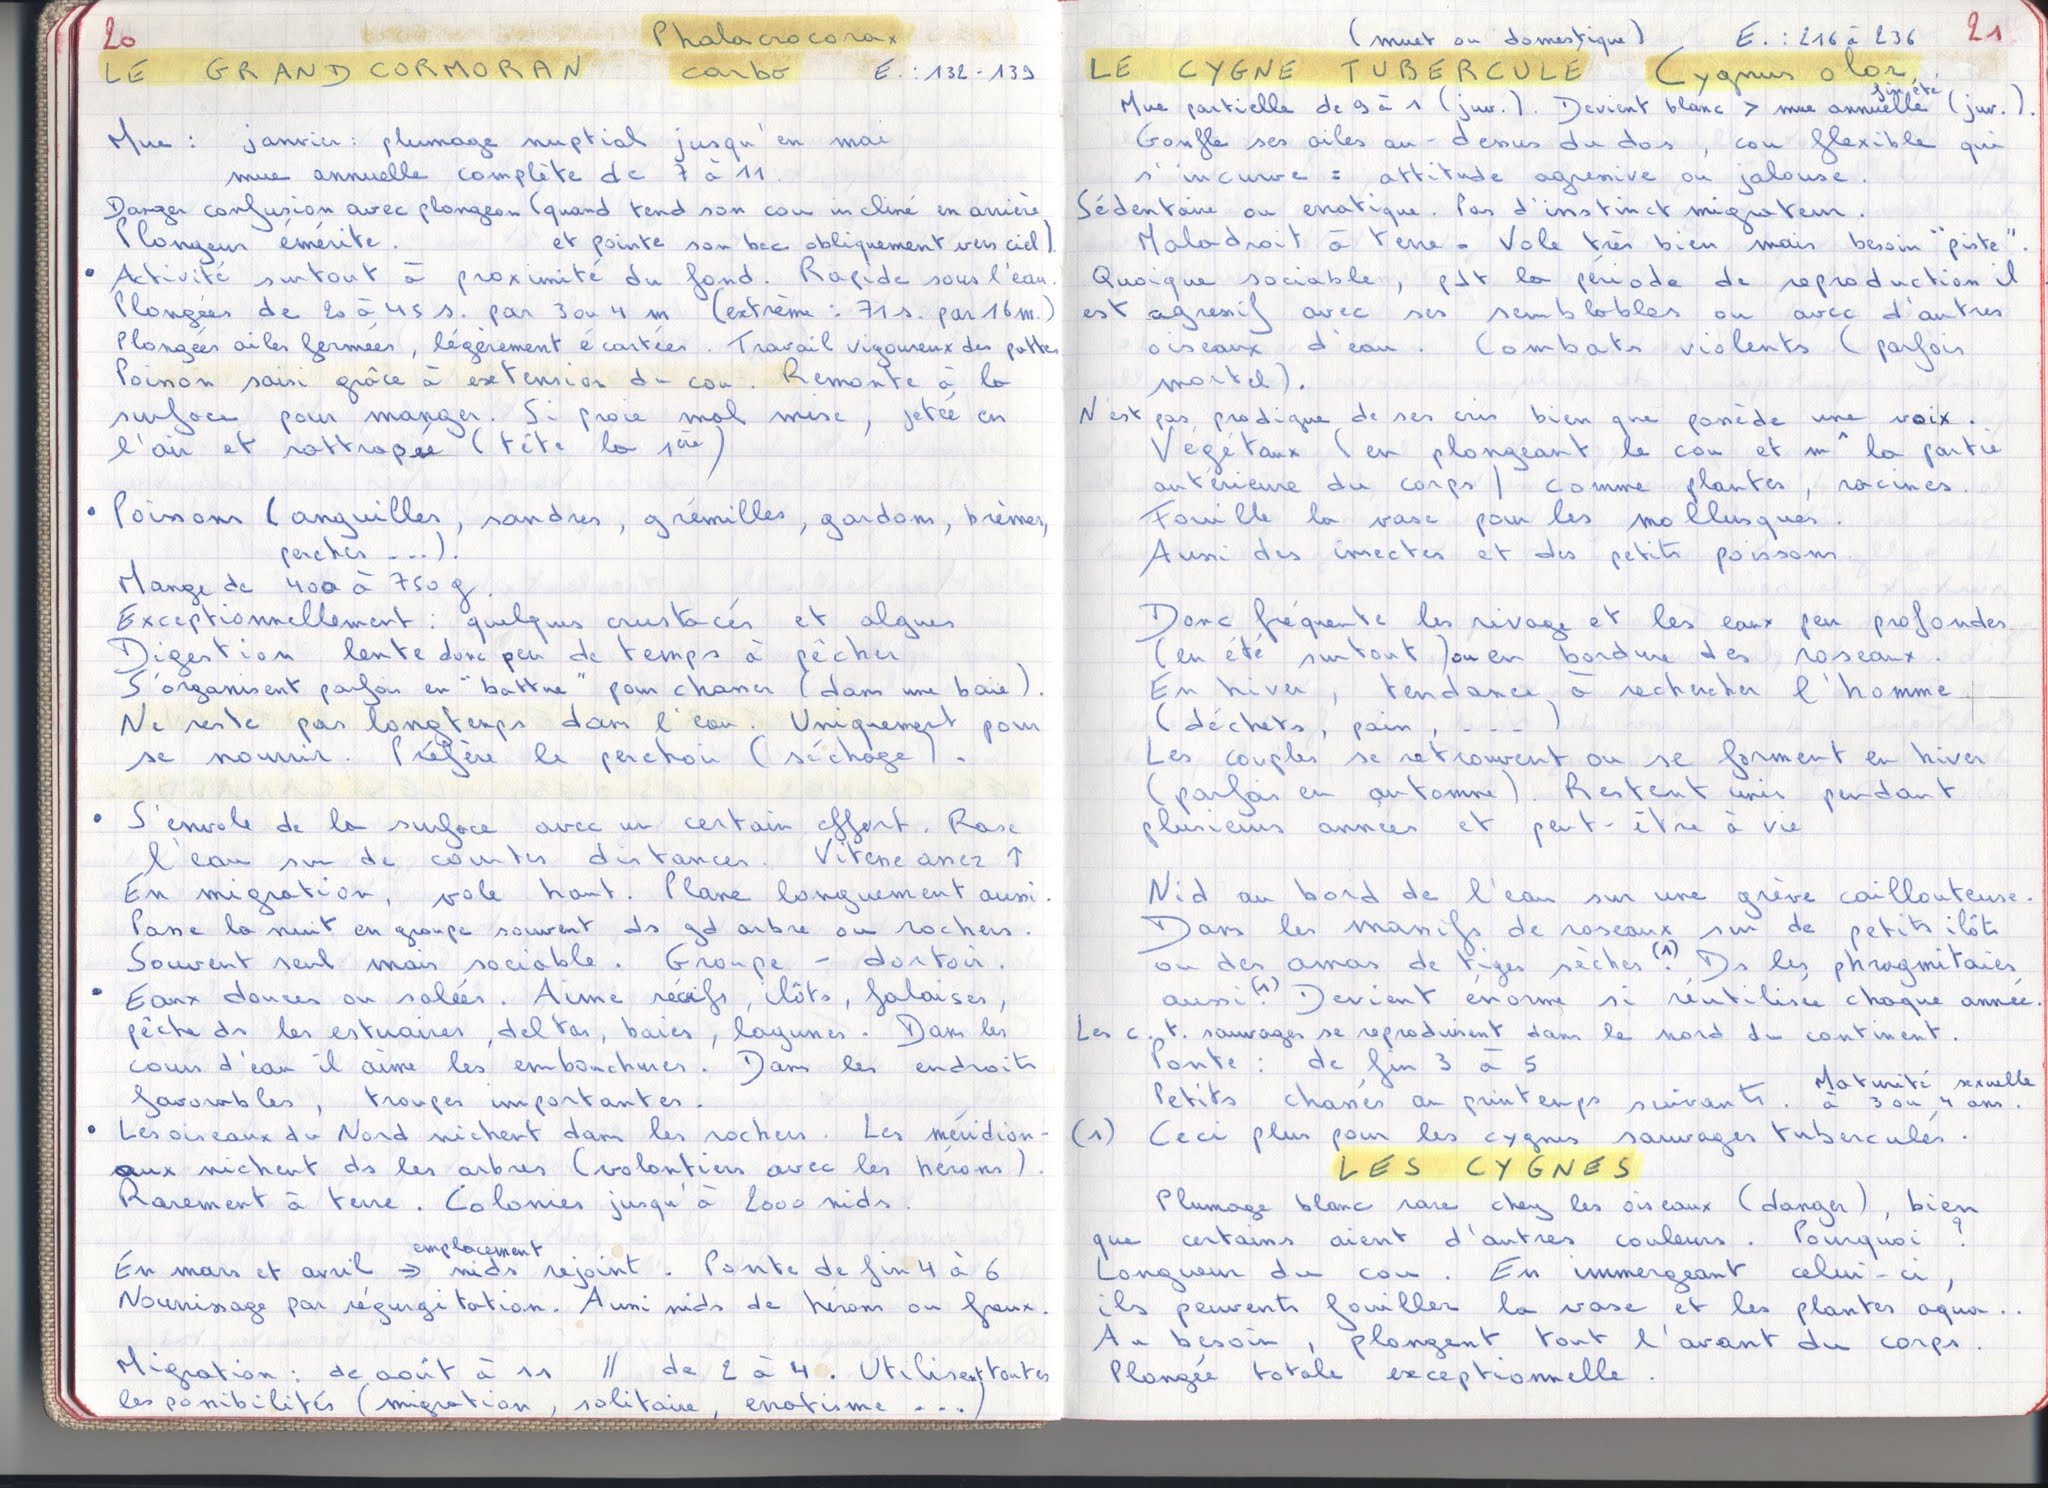 20
Phalacrocorax
LE GRAND CORMORAN carbo E. : 132-139
Mue : janvier : plumage nuptial jusqu'en mai
mue annuelle complète de 7 à 11.
Danger confusion avec plongeon (quand tend son cou incliné en arrière
Plongeur émérite. et pointe son bec obliquement vers ciel).
• Activité surtout à proximité du fond. Rapide sous l'eau.
Plongées de 20 à 45 s. par 3 ou 4 m (extrême : 71 s. par 16 m.)
Plongées ailes fermées, légèrement écartées. Travail vigoureux des pattes
Poisson saisi grâce à extension du cou. Remonte à la
surface pour manger. Si proie mal mise, jetée en
l'air et rattrapée (tête la 1ère)
• Poissons (anguilles, sandres, grémilles, gardons, brèmes,
perches ...).
Mange de 400 à 750 g.
Exceptionnellement : quelques crustacés et algues
Digestion lente donc peu de temps à pêcher
S'organisent parfois en "battue" pour chasser (dans une baie).
Ne reste pas longtemps dans l'eau. Uniquement pour
se nourrir. Préfère le perchoir (séchage).
• S'envole de la surface avec un certain effort. Rase
l'eau sur de courtes distances. Vitesse assez ↑
En migration, vole haut. Plane longuement aussi.
Passe la nuit en groupe souvent ds gd arbre ou rochers.
Souvent seul mais sociable. Groupe - dortoir.
• Eaux douces ou salées. Aime récifs, îlôts, falaises,
pêche ds les estuaires, deltas, baies, lagunes. Dans les
cours d'eau il aime les embouchures. Dans les endroits
favorables, troupes importantes.
• Les oiseaux du Nord nichent dans les rochers. Les méridion-
aux nichent ds les arbres (volontiers avec les hérons).
Rarement à terre. Colonies jusqu'à 2000 nids.
emplacement
En mars et avril => nids rejoint. Ponte de fin 4 à 6
Nourrissage par régurgitation. Aussi nids de hérons ou freux.
Migration : de août à 11 // de 2 à 4. Utilisent toutes
les possibilités (migration, solitaire, erratisme ...)
(muet ou domestique) E. : 216 à 236 21
LE CYGNE TUBERCULÉ Cygnus olor
fin été
Mue partielle de 9 à 1 (juv.). Devient blanc > mue annuelle (juv.).
Gonfle ses ailes au-dessus du dos, cou flexible qui
s'incurve = attitude agressive ou jalouse.
Sédentaire ou erratique. Pas d'instinct migrateur.
Maladroit à terre. Vole très bien mais besoin "piste".
Quoique sociable, pdt la période de reproduction il
est agressif avec ses semblables ou avec d'autres
oiseaux d'eau. Combats violents (parfois
mortel).
N'est pas prodigue de ses cris bien que possède une voix.
Végétaux (en plongeant le cou et m^ la partie
antérieure du corps) comme plantes, racines.
Fouille la vase pour les mollusques.
Aussi des insectes et des petits poissons.
Donc fréquente les rivage et les eaux peu profondes
(en été surtout) ou en bordure des roseaux.
En hiver, tendance à rechercher l'homme
(déchets, pain, ...)
Les couples se retrouvent ou se forment en hiver
(parfois en automne). Restent unis pendant
plusieurs années et peut-être à vie
Nid au bord de l'eau sur une grève caillouteuse.
Dans les massifs de roseaux sur de petits ilôts
ou des amas de tiges sèches (1). Ds les phragmitaies
aussi (1). Devient énorme si réutilisé chaque année.
Les c. t. sauvages se reproduisent dans le nord du continent.
Ponte : de fin 3 à 5
Petits chassés au printemps suivants. Maturité sexuelle
à 3 ou 4 ans.
(1) Ceci plus pour les cygnes sauvages tuberculés.
LES CYGNES
Plumage blanc rare chez les oiseaux (danger), bien
que certains aient d'autres couleurs. Pourquoi ?
Longueur du cou. En immergeant celui-ci,
ils peuvents fouiller la vase et les plantes aqua..
Au besoin, plongent tout l'avant du corps.
Plongée totale exceptionnelle.